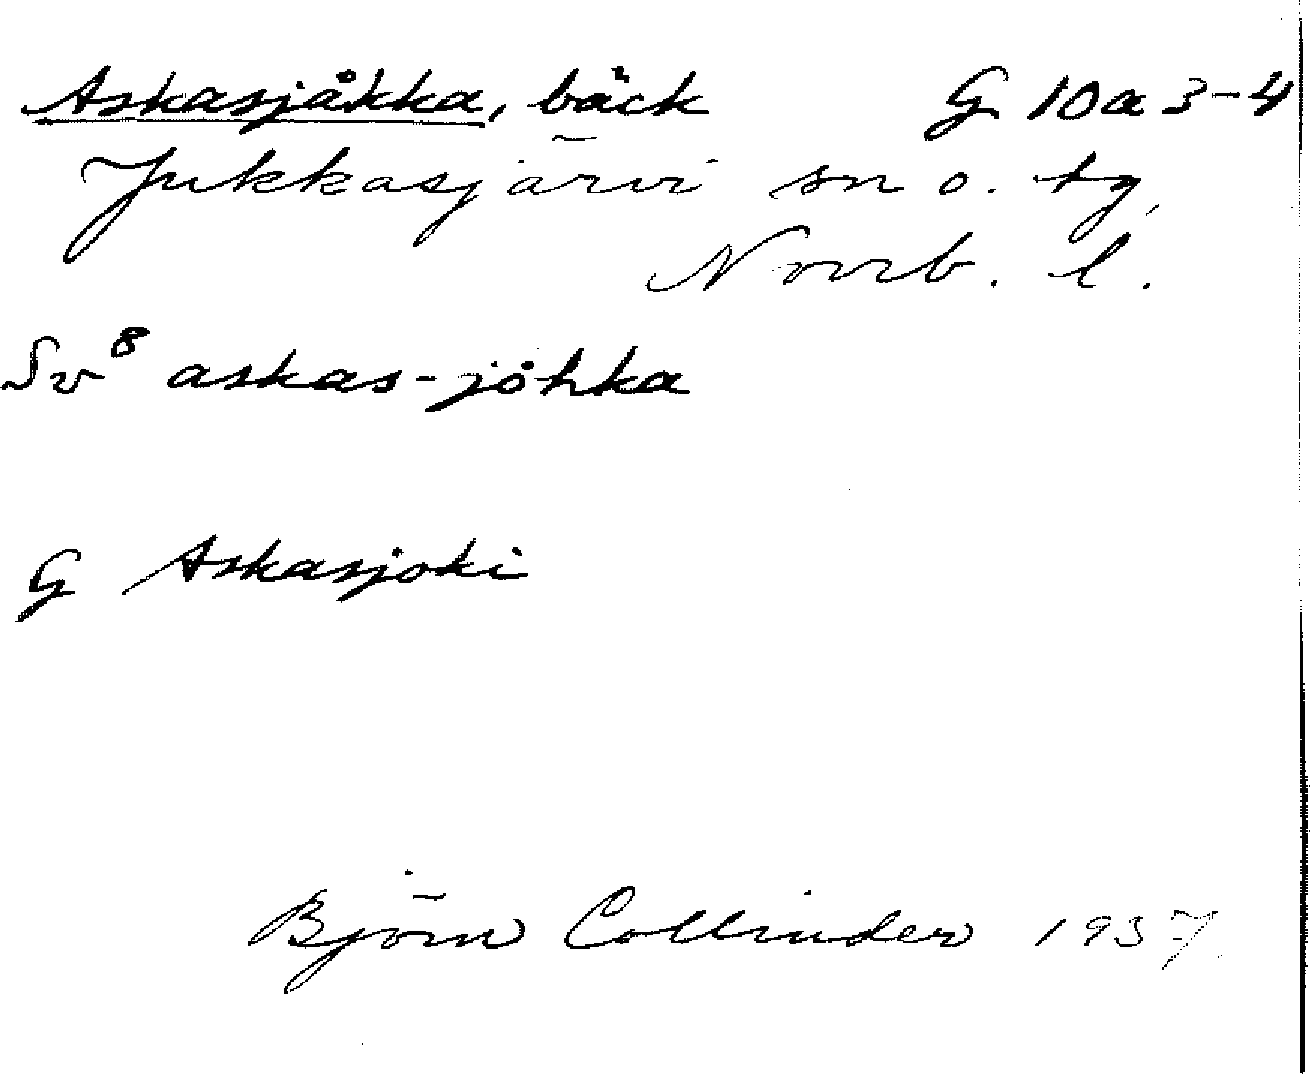 Askasjåkka, bäck G 10a 3-4
Jukkasjärvi sn o. tg,
Norrb. l.
Sv⁸ askas-jȯhka
G Askasjoki
Björn Collinder 1937.